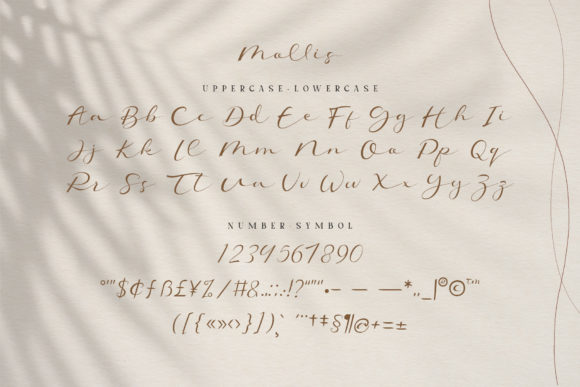 Mallis
UPPERCASE·LOWERCASE
Aa Bb Cc Dd Ee Ff Gg Hh Ii
Jj Kk Ll Mm Nn Oo Pp Qq
Rr Ss Tt Uu Vv Ww Xx Yy Zz
NUMBER·SYMBOL
1234567890
°"'"$¢ƒß£¥%/#&…:;.!?"""•– — —*.,_|®©™
([{«»‹›}])¸` ´¨†‡§¶@+=±